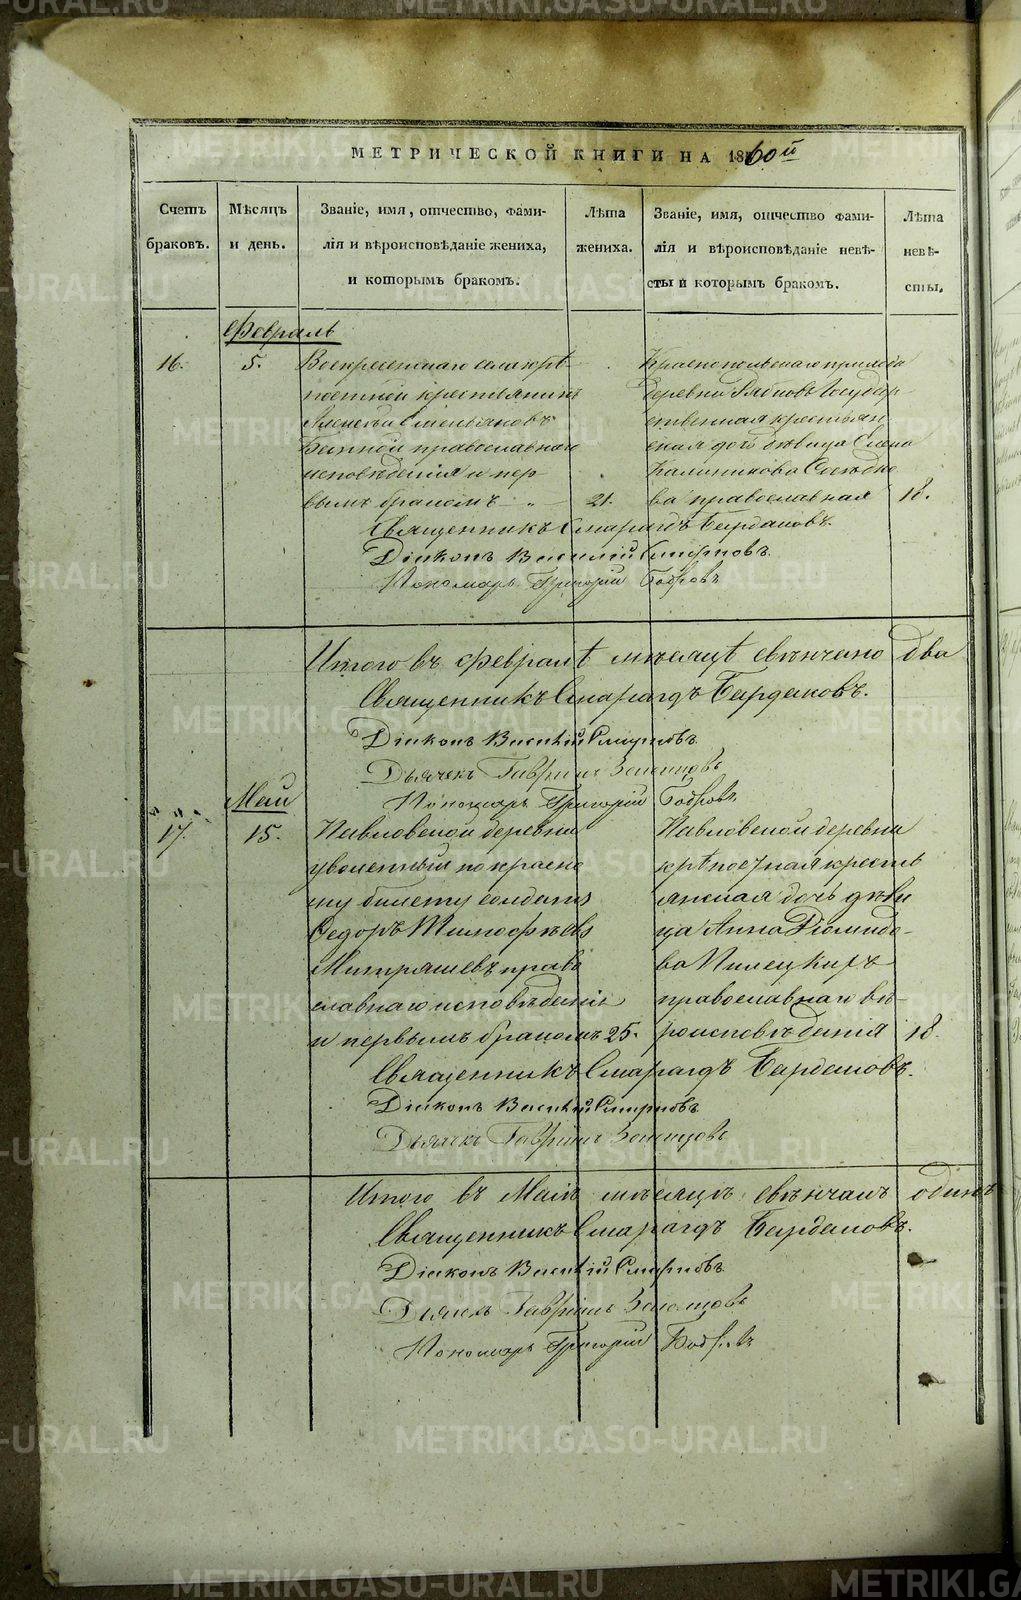 METRIKI.GASO-URAL.RU
МЕТРИЧЕСКОЙ КНИГИ НА 1860й
Счетъ браковъ.
Мѣсяцъ и день.
Званіе, имя, отчество, фами-
лія и вѣроисповѣданіе жениха,
и которымъ бракомъ.
Лѣта жениха.
Званіе, имя, отчество фами-
лія и вѣроисповѣданіе невѣ-
сты и которымъ бракомъ.
Лѣта невѣ-
сты.
Февраль
16. 5.
Воскресенскаго села крѣ-
постной крестьянинъ
православнаго
исповѣданія и пер
вымъ бракомъ 21.
Краснопольскаго прихода
деревни Государ
ственная крестьян
ская дочь дѣвица
ва православная 18.
Священникъ Смарагдъ Бардаковъ.
Діаконъ Василій Смирновъ
Пономарь Григорій Бобровъ
Итого въ Февралѣ мѣсяцѣ свѣнчано два
Священникъ Смарагдъ Бардаковъ.
Діаконъ Василій Смирновъ
Дьячекъ Гавріилъ
Пономарь Григорій Бобровъ
Май
17. 15.
Павловской деревни
уволенный по красно
му билету солдатъ
Федоръ Тимофѣевъ
Митряшевъ право
славнаго исповѣданія
и первымъ бракомъ 25.
Павловской деревни
крѣпостная крестья
янская дочь дѣви
ца Анна Діомидо-
ва Пилецкихъ
православнаго вѣ-
роисповѣданія 18.
Священникъ Смарагдъ Бардаковъ.
Діаконъ Василій Смирновъ
Дьячекъ Гавріилъ
Итого въ Маіѣ мѣсяцѣ свѣнчанъ одинъ
Священникъ Смарагдъ Бардаковъ.
Діаконъ Василій Смирновъ
Дьячекъ Гавріилъ
Пономарь Григорій Бобровъ